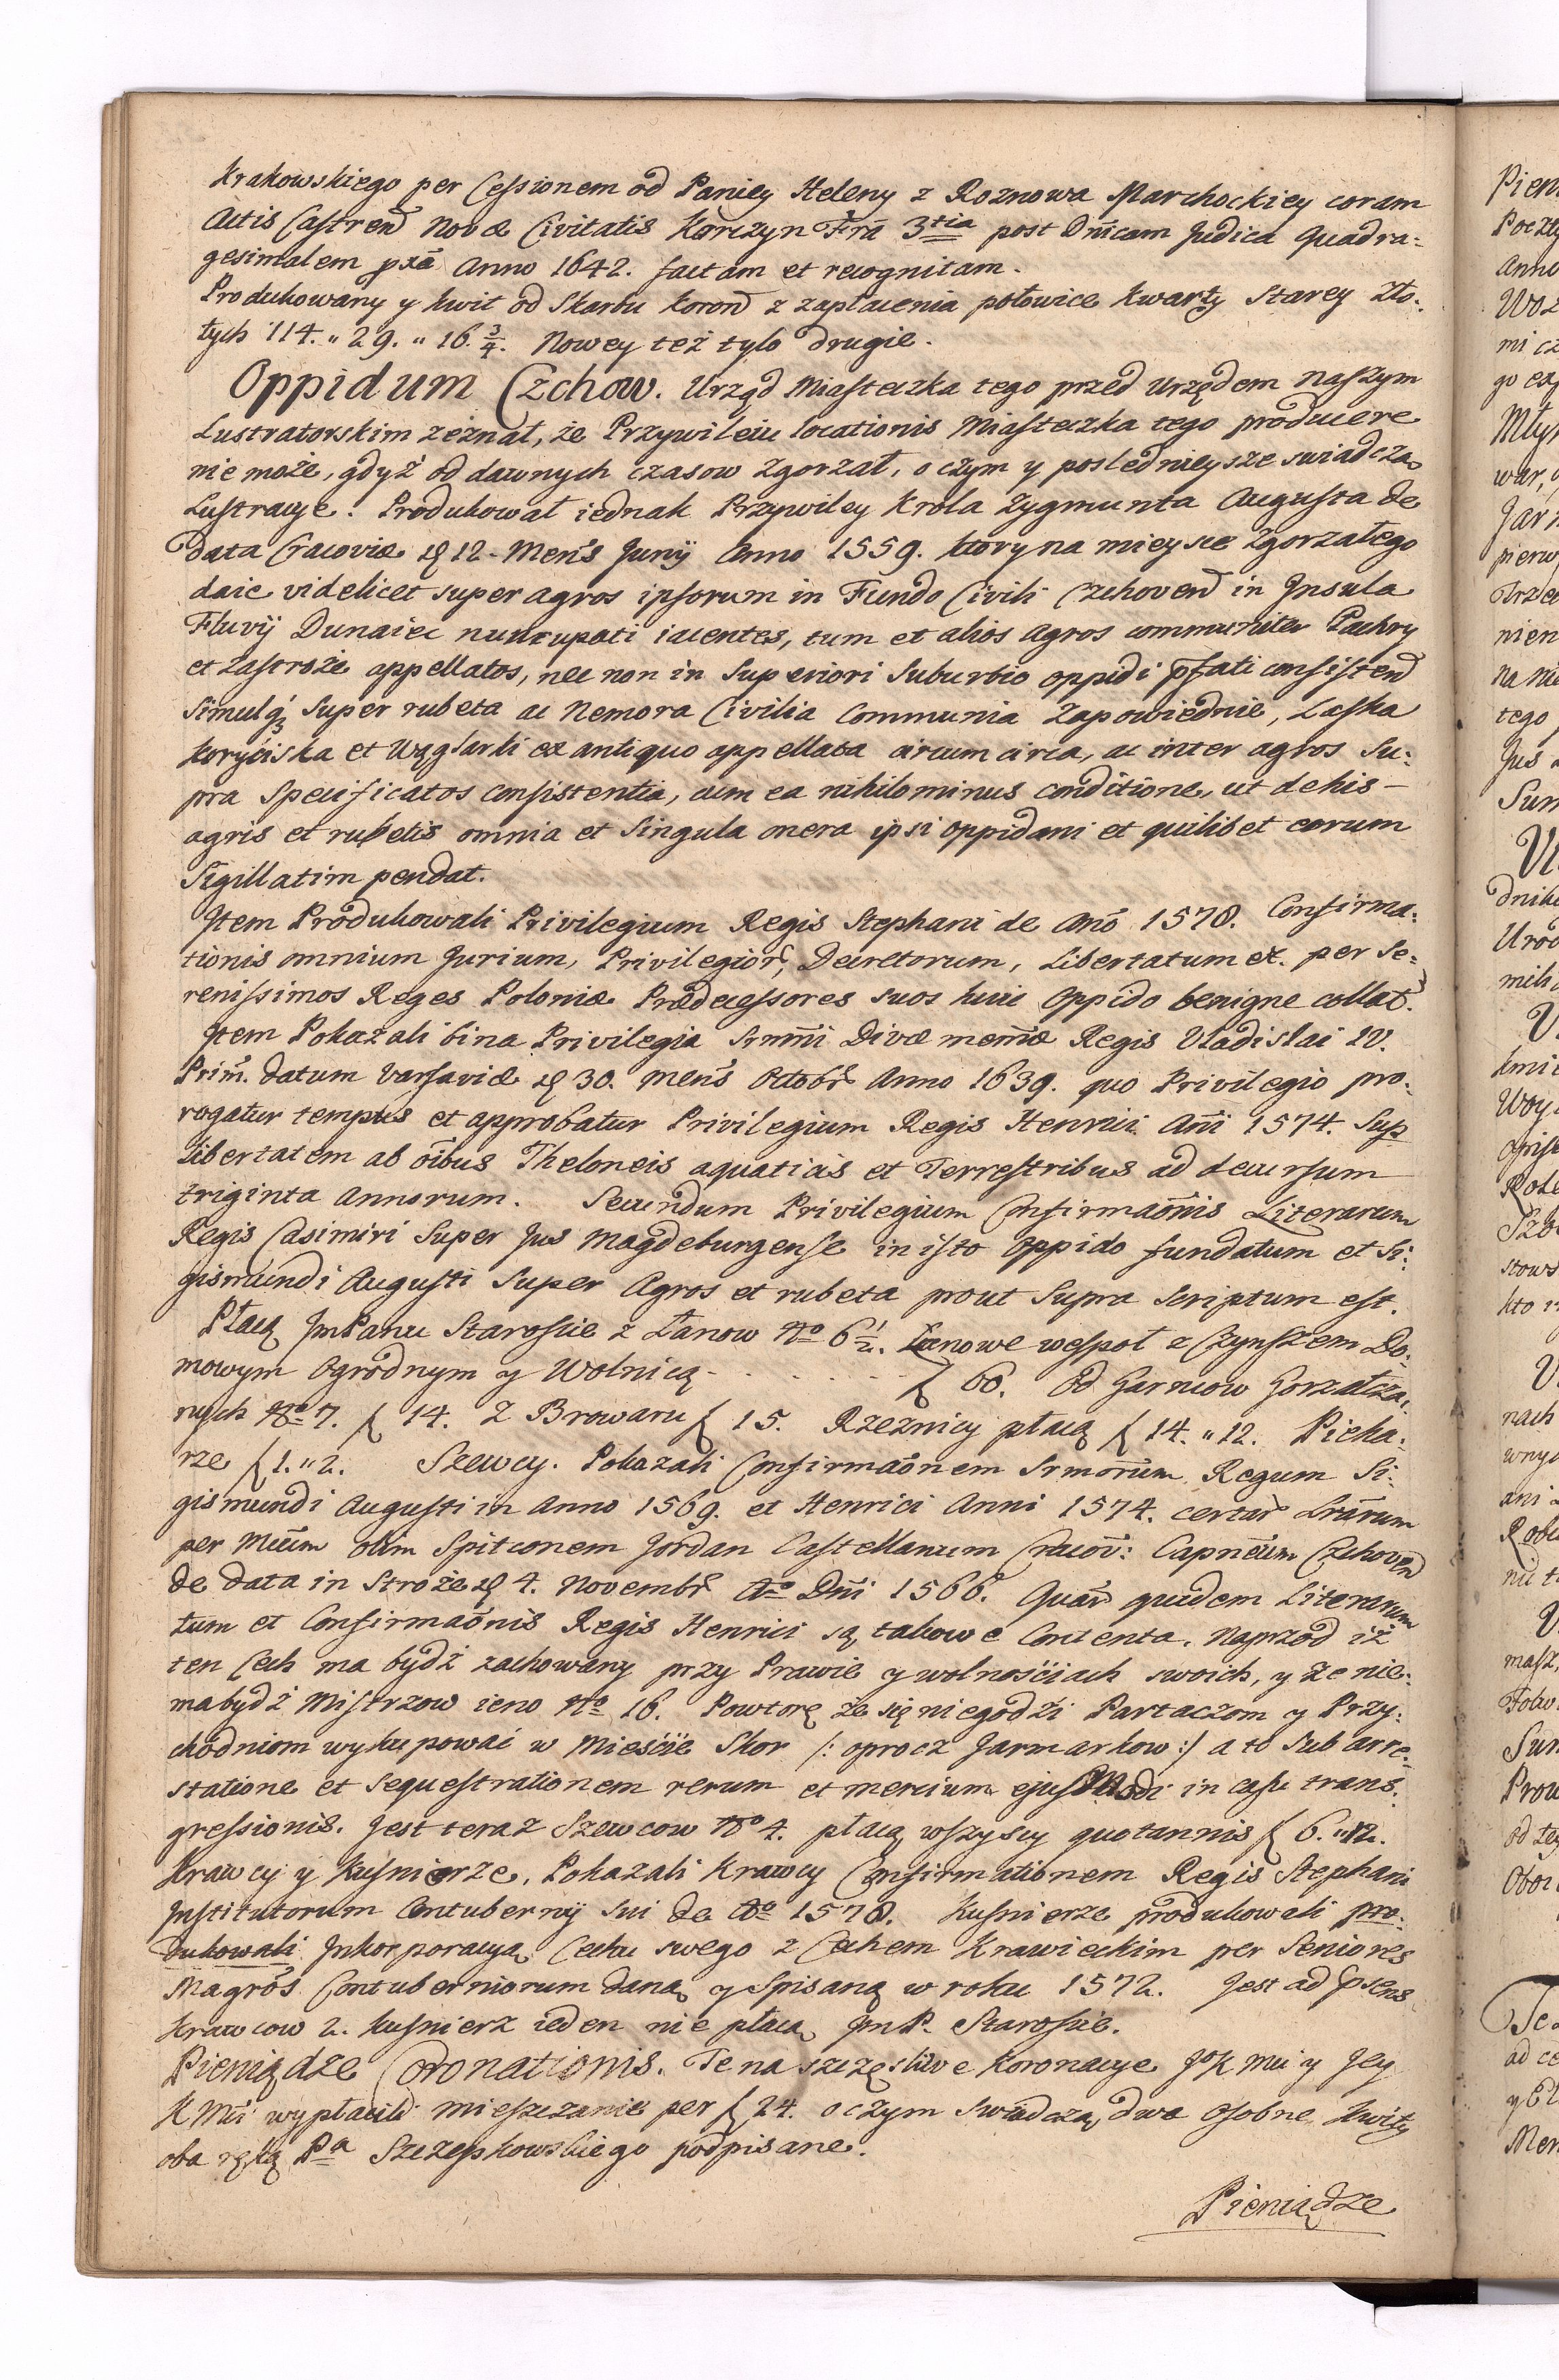 Krakowskiego per Cessionem od Paniey Heleny z Roznowa Marchockiey coram
Actis Castren Novæ Civitatis Korczyn Fra 3tia post Dnicam Judica Quadra:
gesimalem pxa Anno 1642. factam et recognitam.
Produkowany y kwit od Skarbu Koron z zapłacenia połowice kwarty starey Zło:
tych 114. " 29. " 16. 3/4. Nowey też tylo drugie.
Oppidum Czchow. Urząd Miasteczka tego przed Urzędem naszym
Lustratorskim zeznał, że Przywileiu locationis Miasteczka tego producere
nie może, gdyż od dawnych czasow zgorzał, o czym y poslednieysze swiadczą
Lustracye. Produkował iednak Przywiley Krola Zygmunta Augusta de
data Cracoviæ d 12. Mens Junij Anno 1559. ktory na mieysce zgorzałego
daie videlicet super agros ipsorum in Fundo Civili Czchoven in Insula
Fluvij Dunaiec nuncupati iacentes, tum et alios agros communiter Pachry
et Zastroże appellatos, nec non in Superiori Suburbio oppidi pfati consisten
Simulq3 super rubeta ac Nemora Civilia Communia Zapowiednie, Laska
Koryciska et Węglarki ex antiquo appellata circum circa, ac inter agros Su:
pra Specificatos consistentia, cum ea nihilominus conditione, ut de his –
agris et rubetis omnia et Singula onera ipsi oppidani et quilibet eorum
Sigillatim pendat.
Item Produkowali Privilegium Regis Stephani de Ano 1578. Confirma:
tionis omnium Jurium, Privilegior, Decretorum, Libertatum ex. per Se:
renissimos Reges Poloniæ Prædecessores suos huic Oppido benigne collat.
Item Pokazali bina Privilegia Srmi Divæ memæ Regis Vladislai IV.
Prim. datum Varsaviæ d 30. mens Octobr Anno 1639. quo Privilegio pro:
rogatur tempus et approbatur Privilegium Regis Henrici Ani 1574. Sup
libertatem ab oibus Theloneis aquaticis et Terrestribus ad decursum
triginta Annorum. Secundum Privilegium Confirmaonis Literarum
Regis Casimiri Super Jus Magdeburgense in isto Oppido fundatum et Si:
gismundi Augusti Super Agros et rubeta prout Supra Scriptum est.
Płacą JmPanu Staroscie z Łanow No 6 1/2. Łanowe wespoł z Czynszem Do:
mowym Ogrodnym y Wolnicą - . . . . . f 60. Od Garncow Gorzałcza:
nych No 7. f 14. Z Browaru f 15. Rzeznicy płacą f 14. " 12. Pieka:
rze f 1. " 2. Szewcy. Pokazali Confirmaonem Srmorum Regum Si:
gismundi Augusti in Anno 1569. et Henrici Anni 1574. certar Lrarum
per Mcum olim Spitconem Jordan Castellanum Cracov: Capneum Czchoven
de data in Stroże d 4. Novembr Ao Dni 1566. Quar quidem Literarum
tum et Confirmaonis Regis Henrici są takowe Contenta. Naprzod iż
ten Cech ma bydź zachowany przy Prawie y wolnościach swoich, y że nie:
ma bydź Mistrzow ieno No 16. Powtorę że się niegodzi Partaczom y Przy:
chodniom wykupować w Mieście Skor /: oprocz Jarmarkow :/ a to Sub arre:
statione et Sequestrationem rerum et mercium ejusmodi in casu trans:
gressionis. Jest teraz Szewcow No 4. płacą wszyscy quotannis f 6. " 12.
Krawcy y Kusnierze. Pokazali Krawcy Confirmationem Regis Stephani
Institutorum Contubernij Sui de Ao 1578. Kusnierze produkowali pro:
dukowali Inkorporacyą Cechu swego z Cechem Krawieckim per Seniores
Magros Contuberniorum daną y Spisaną w roku 1572. Jest ad psens
Krawcow 2. Kusnierz ieden nie płacą JmP. Staroscie.
Pieniądze Coronationis. Te na szczęsliwe Koronacye JoK Mci y Jey
K Mci wypłacili mieszczanie per f 24. o czym Swiadczą dwa Osobne Kwity
oba ręką Pa Szczepkowskiego podpisane.
Pieniądze